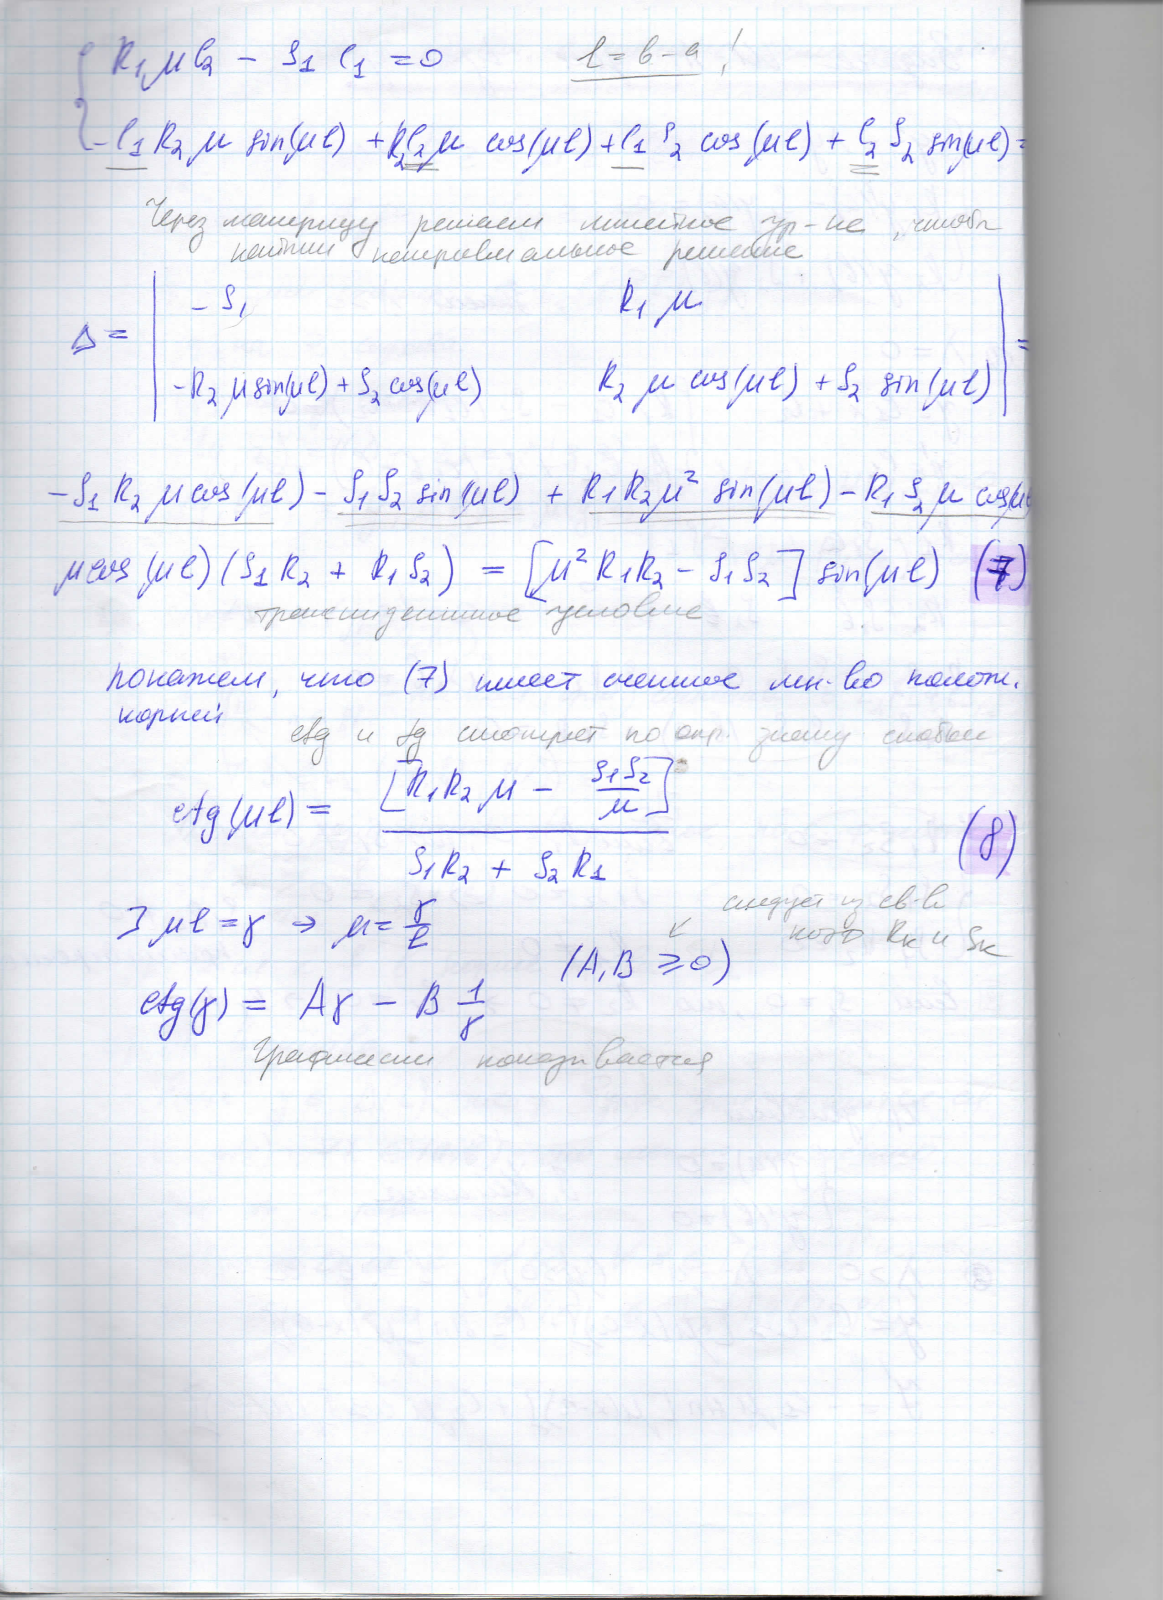 R₁μC₂ − S₁ C₁ = 0
l = b − a !
−C₁ R₂ μ sin(μl) + R₂C₂μ cos(μl) + C₁ S₂ cos(μl) + C₂ S₂ sin(μl) =
Через матрицу решаем линейное ур-не, чтобы
найти нетривиальное решение
− S₁ R₁ μ
Δ = =
−R₂ μ sin(μl) + S₂ cos(μl) R₂ μ cos(μl) + S₂ sin(μl)
−S₁ R₂ μ cos(μl) − S₁S₂ sin(μl) + R₁R₂μ² sin(μl) − R₁ S₂ μ cos(μl
μ cos(μl) (S₁ R₂ + R₁S₂) = [μ² R₁R₂ − S₁S₂] sin(μl) (7)
трансцидентное условие
покажем, что (7) имеет счетное мн-во полож.
корней
ctg и tg смотрят по опр. знаку скобки
ctg(μl) = [R₁R₂ μ − S₁S₂/μ] / S₁R₂ + S₂R₁ (8)
следует из св-в
∃ μl = γ → μ = γ/l
коэф R_k и S_k
(A, B ⩾ 0)
ctg(γ) = Aγ − B 1/γ
Графически показывается